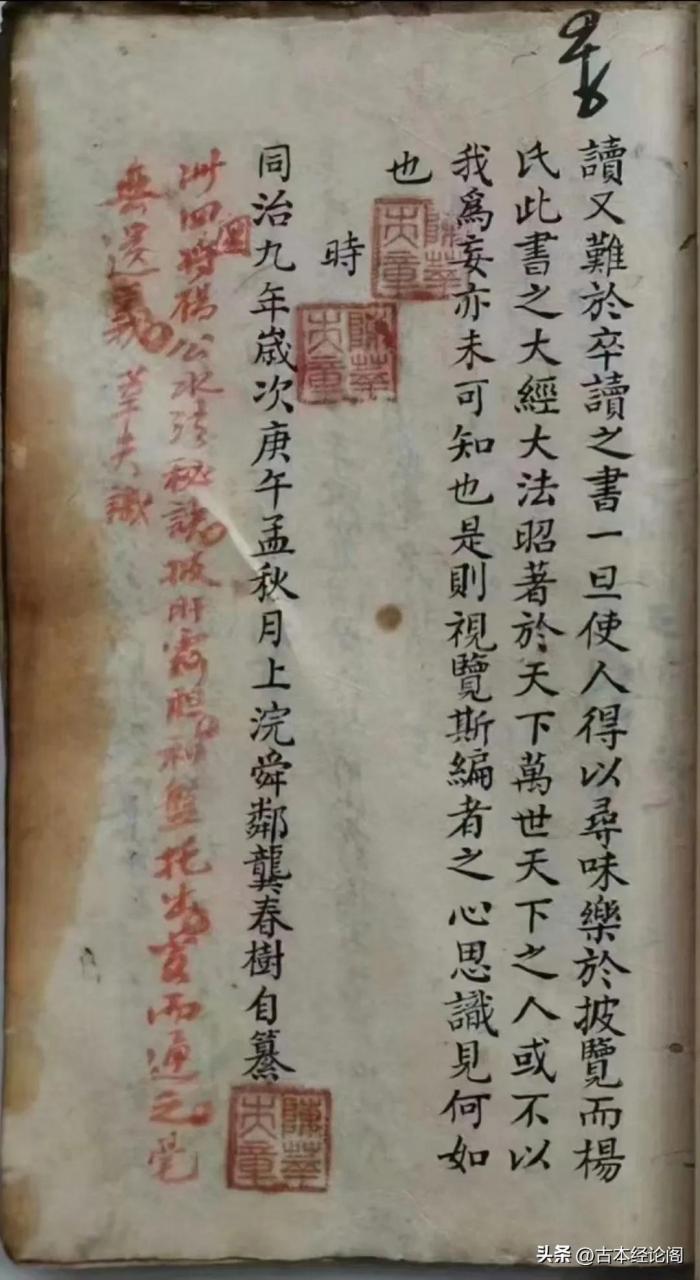 讀又難於卒讀之書一旦使人得以尋味樂於披覽而楊
氏此書之大經大法昭著於天下萬世天下之人或不以
我爲妄亦未可知也是則視覽斯編者之心思識見何如
也
陳莘夫章
時
陳莘夫章
同治九年歲次庚午孟秋月上浣舜鄰龔春樹自纂
陳莘夫章
卅四圖將楊公水法秘訣披肝露胆和盤托而通之毫
無遺義莘夫識
头条 @古本经论阁